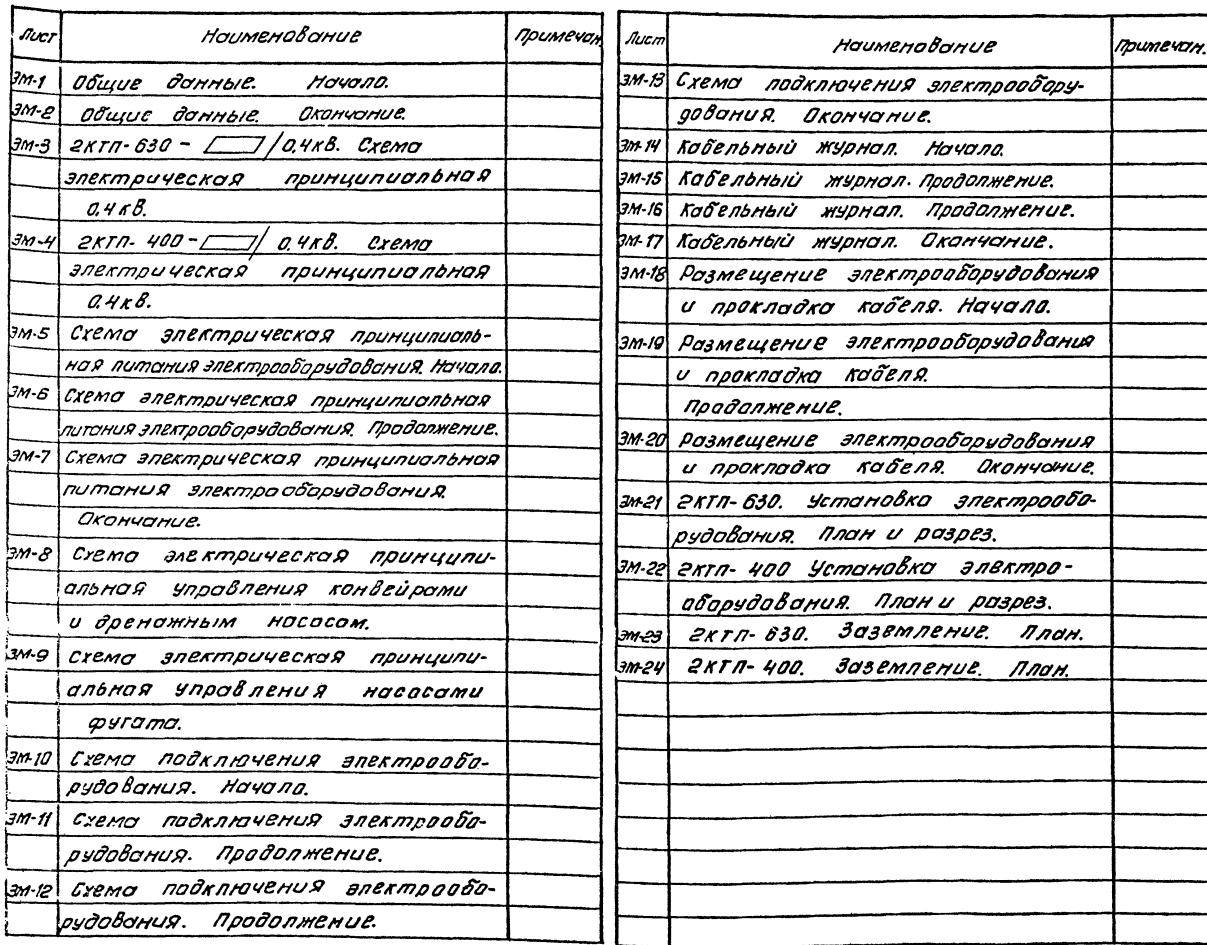 Лист Наименование Примечан.
ЭМ-1 Общие данные. Начало.
ЭМ-2 Общие данные. Окончание.
ЭМ-3 2КТП-630 - /0,4кВ. Схема
электрическая принципиальная
0,4 кВ.
ЭМ-4 2КТП-400 - / 0,4кВ. Схема
электрическая принципиальная
0,4 кВ.
ЭМ-5 Схема электрическая принципиаль-
ная питания электрооборудования. Начало.
ЭМ-6 Схема электрическая принципиальная
питания электрооборудования. Продолжение.
ЭМ-7 Схема электрическая принципиальная
питания электрооборудования.
Окончание.
ЭМ-8 Схема электрическая принципи-
альная управления конвейрами
и дренажным насосом.
ЭМ-9 Схема электрическая принципи-
альная управления насосами
фугата.
ЭМ-10 Схема подключения электрообо-
рудования. Начало.
ЭМ-11 Схема подключения электрообо-
рудования. Продолжение.
ЭМ-12 Схема подключения электрообо-
рудования. Продолжение.
Лист Наименование Примечан.
ЭМ-13 Схема подключения электрообору-
дования. Окончание.
ЭМ-14 Кабельный журнал. Начало.
ЭМ-15 Кабельный журнал. Продолжение.
ЭМ-16 Кабельный журнал. Продолжение.
ЭМ-17 Кабельный журнал. Окончание.
ЭМ-18 Размещение электрооборудования
и прокладка кабеля. Начало.
ЭМ-19 Размещение электрооборудования
и прокладка кабеля.
Продолжение.
ЭМ-20 Размещение электрооборудования
и прокладка кабеля. Окончание.
ЭМ-21 2КТП-630. Установка электрообо-
рудования. План и разрез.
ЭМ-22 2КТП-400 Установка электро-
оборудования. План и разрез.
ЭМ-23 2КТП-630. Заземление. План.
ЭМ-24 2КТП-400. Заземление. План.